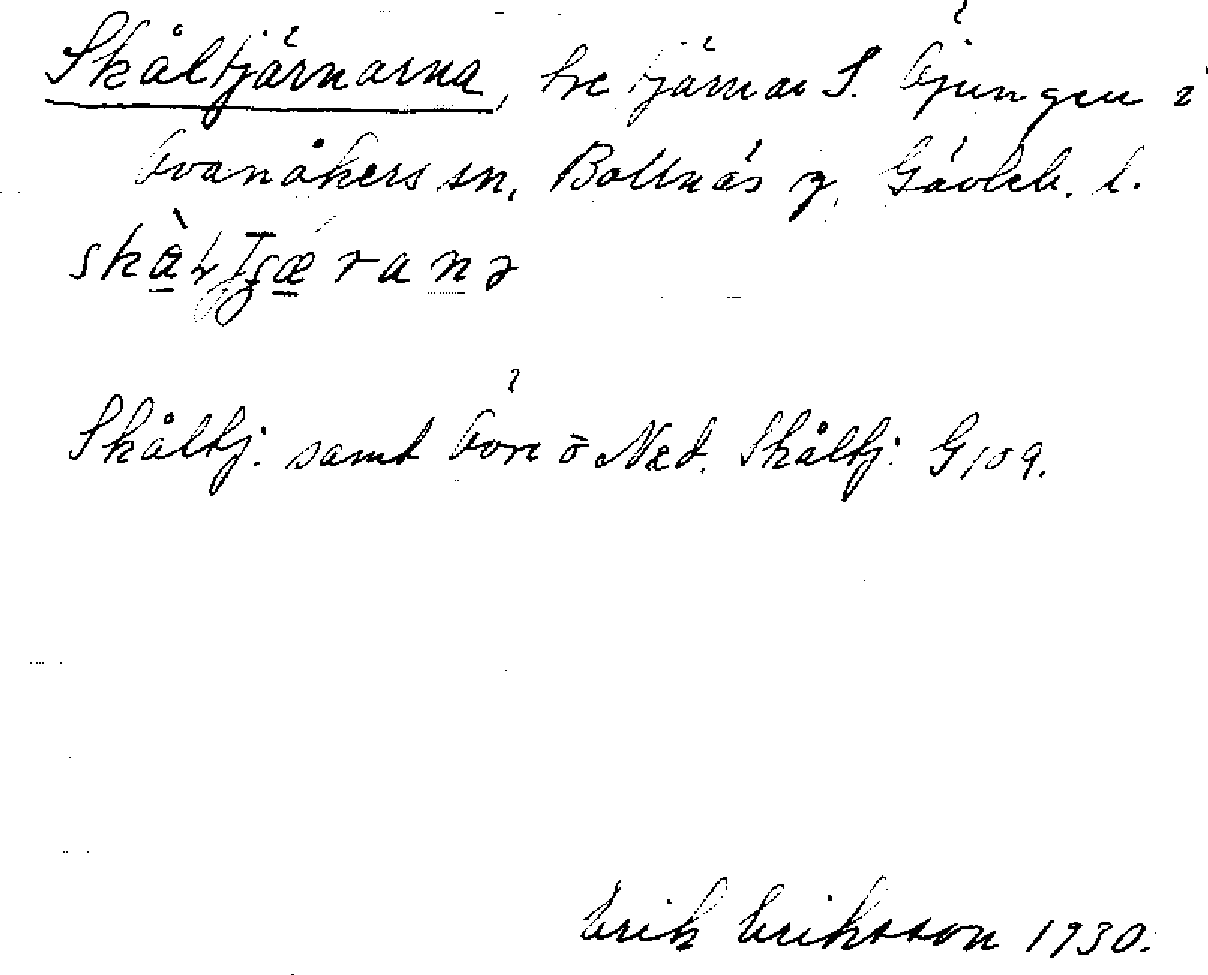 Skåltjärnarna, tre tjärnar S. Öjungen i
Ovanåkers sn, Bollnäs z, Gävleb. l.
Skåltj. samt Övre o Ned. Skåltj. G109.
Erik Eriksson 1930.